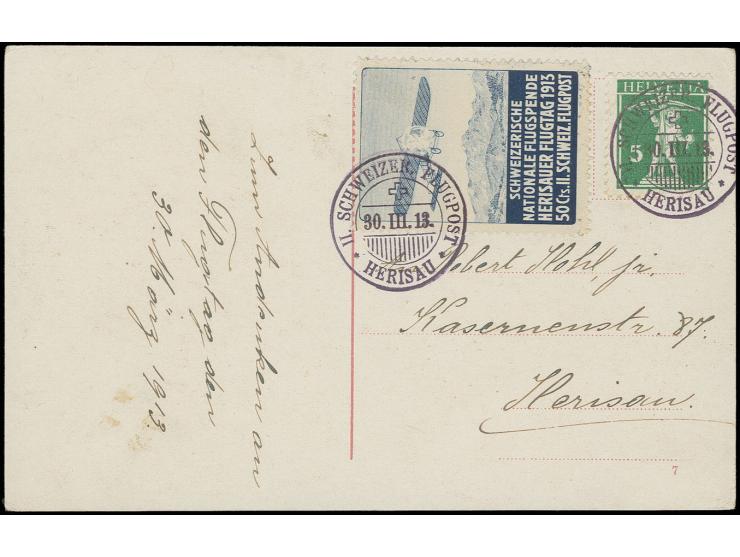 Zum Andenken an
den Flugtag den
30. März 1913.
SCHWEIZERISCHE
NATIONALE FLUGSPENDE
HERISAUER FLUGTAG 1913
50 Cts. II. SCHWEIZ. FLUGPOST
HELVETIA
5
II. SCHWEIZER. FLUGPOST
30. III. 13.
* HERISAU *
FLUGPOST
30. III. 13.
HERISAU *
Robert Hohl, jr.
Kasernenstr. 87.
Herisau.
7